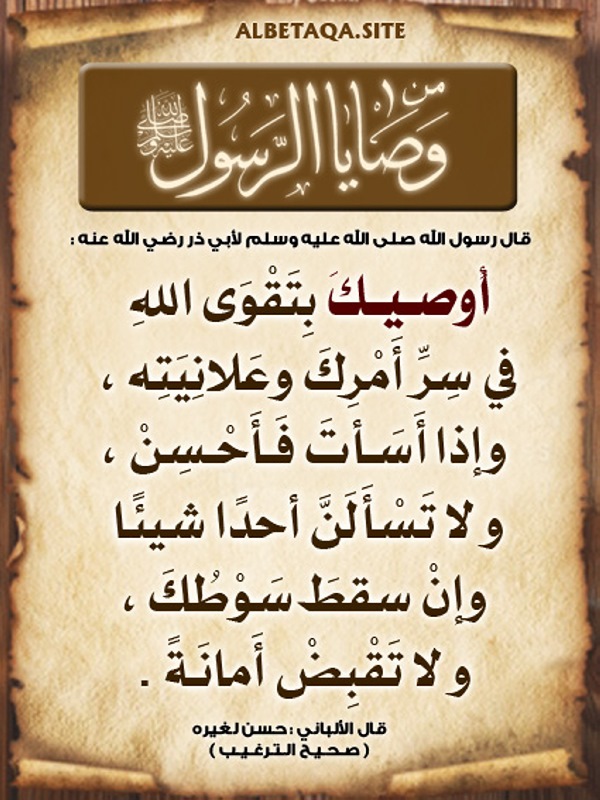 ALBETAQA.SITE
من
وَصَايَا الرَّسُول ﷺ
قال رسول الله صلى الله عليه وسلم لأبي ذر رضي الله عنه :
أُوصـيـكَ بِتَقْوَى اللهِ
في سِرِّ أَمْرِكَ وعَلانِيَتِه ،
وإذا أَسَـأتَ فَـأَحْـسِـنْ ،
ولا تَسْأَلَنَّ أحدًا شيئًا
وإنْ سـقـطَ سَـوْطُـكَ ،
ولا تَقْبِضْ أَمانَـةً .
قال الألباني : حسن لغيره
( صحيح الترغيب )